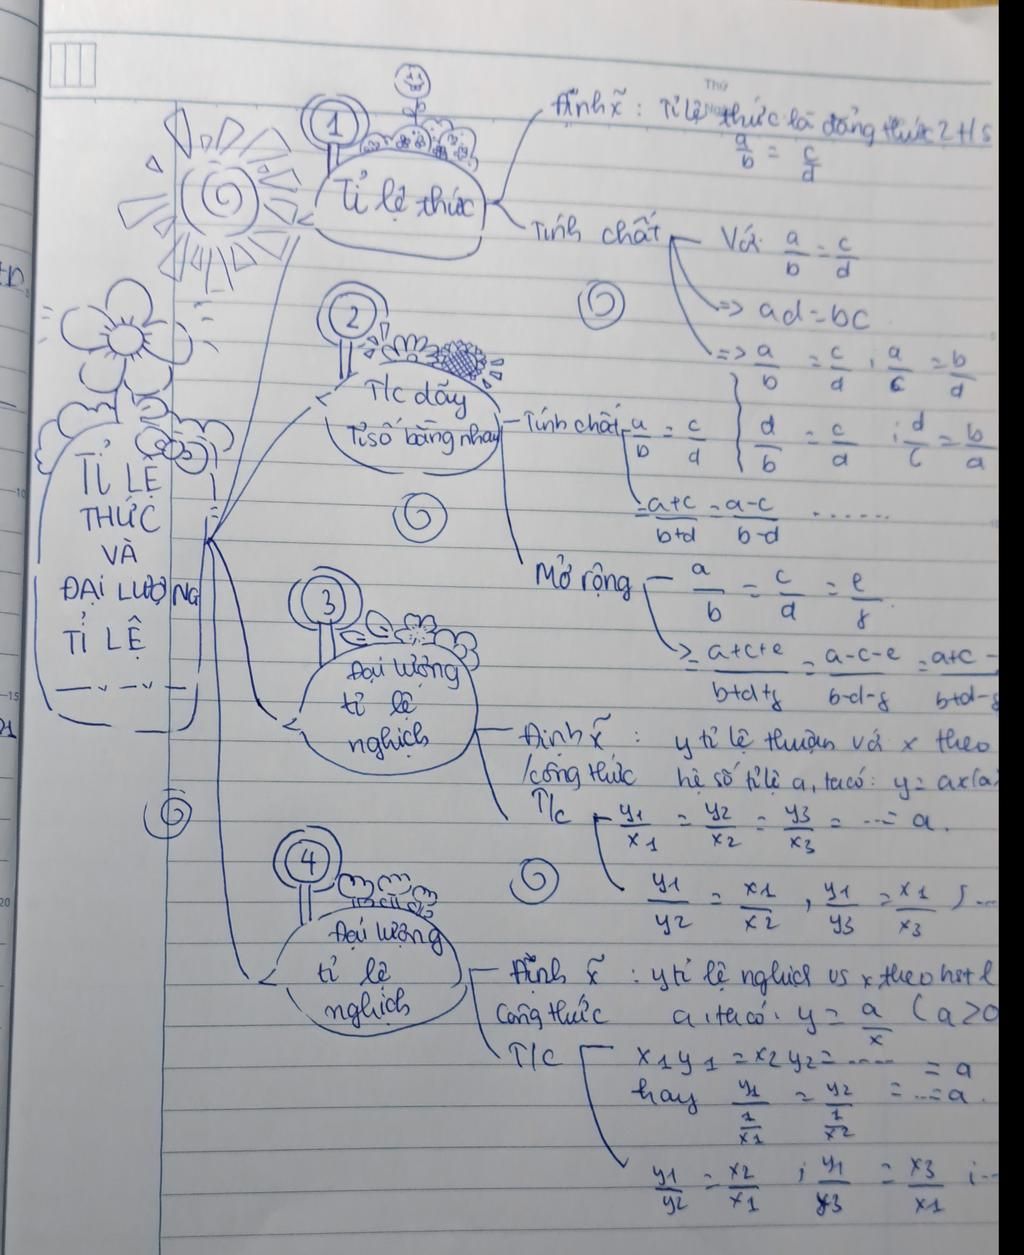 Thứ
TỈ LỆ
THỨC
VÀ
ĐẠI LƯỢNG
TỈ LỆ
1
Tỉ lệ thức
Định ñ : Tỉ lệ thức là đẳng thức 2 t/s
a/b = c/d
Tính chất
Với a/b = c/d
=> ad = bc
=> a/b = c/d , a/c = b/d
d/b = c/a ; d/c = b/a
2
T/c dãy
Tỉ số bằng nhau
Tính chất a/b = c/d
= a+c/b+d = a-c/b-d ......
Mở rộng
a/b = c/d = e/f
= a+c+e/b+d+f = a-c-e/b-d-f = a+c-/b+d-f
3
Đại lượng
tỉ lệ
nghịch
Định ñ : y tỉ lệ thuận với x theo
/công thức hệ số tỉ lệ a, ta có: y = ax (a
T/c
y1/x1 = y2/x2 = y3/x3 = ... = a.
y1/y2 = x1/x2 , y1/y3 = x1/x3 ; ...
4
Đại lượng
tỉ lệ
nghịch
Định ñ : y tỉ lệ nghịch vs x theo hstl
Công thức a, ta có: y = a/x (a>0
T/c
x1y1 = x2y2 = ..... = a
hay y1/1/x1 = y2/1/x2 = ... = a.
y1/y2 = x2/x1 ; y1/y3 = x3/x1 ; ..
10
15
20